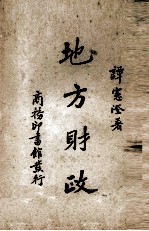 譚憲澄著
地方財政
商務印書館發行